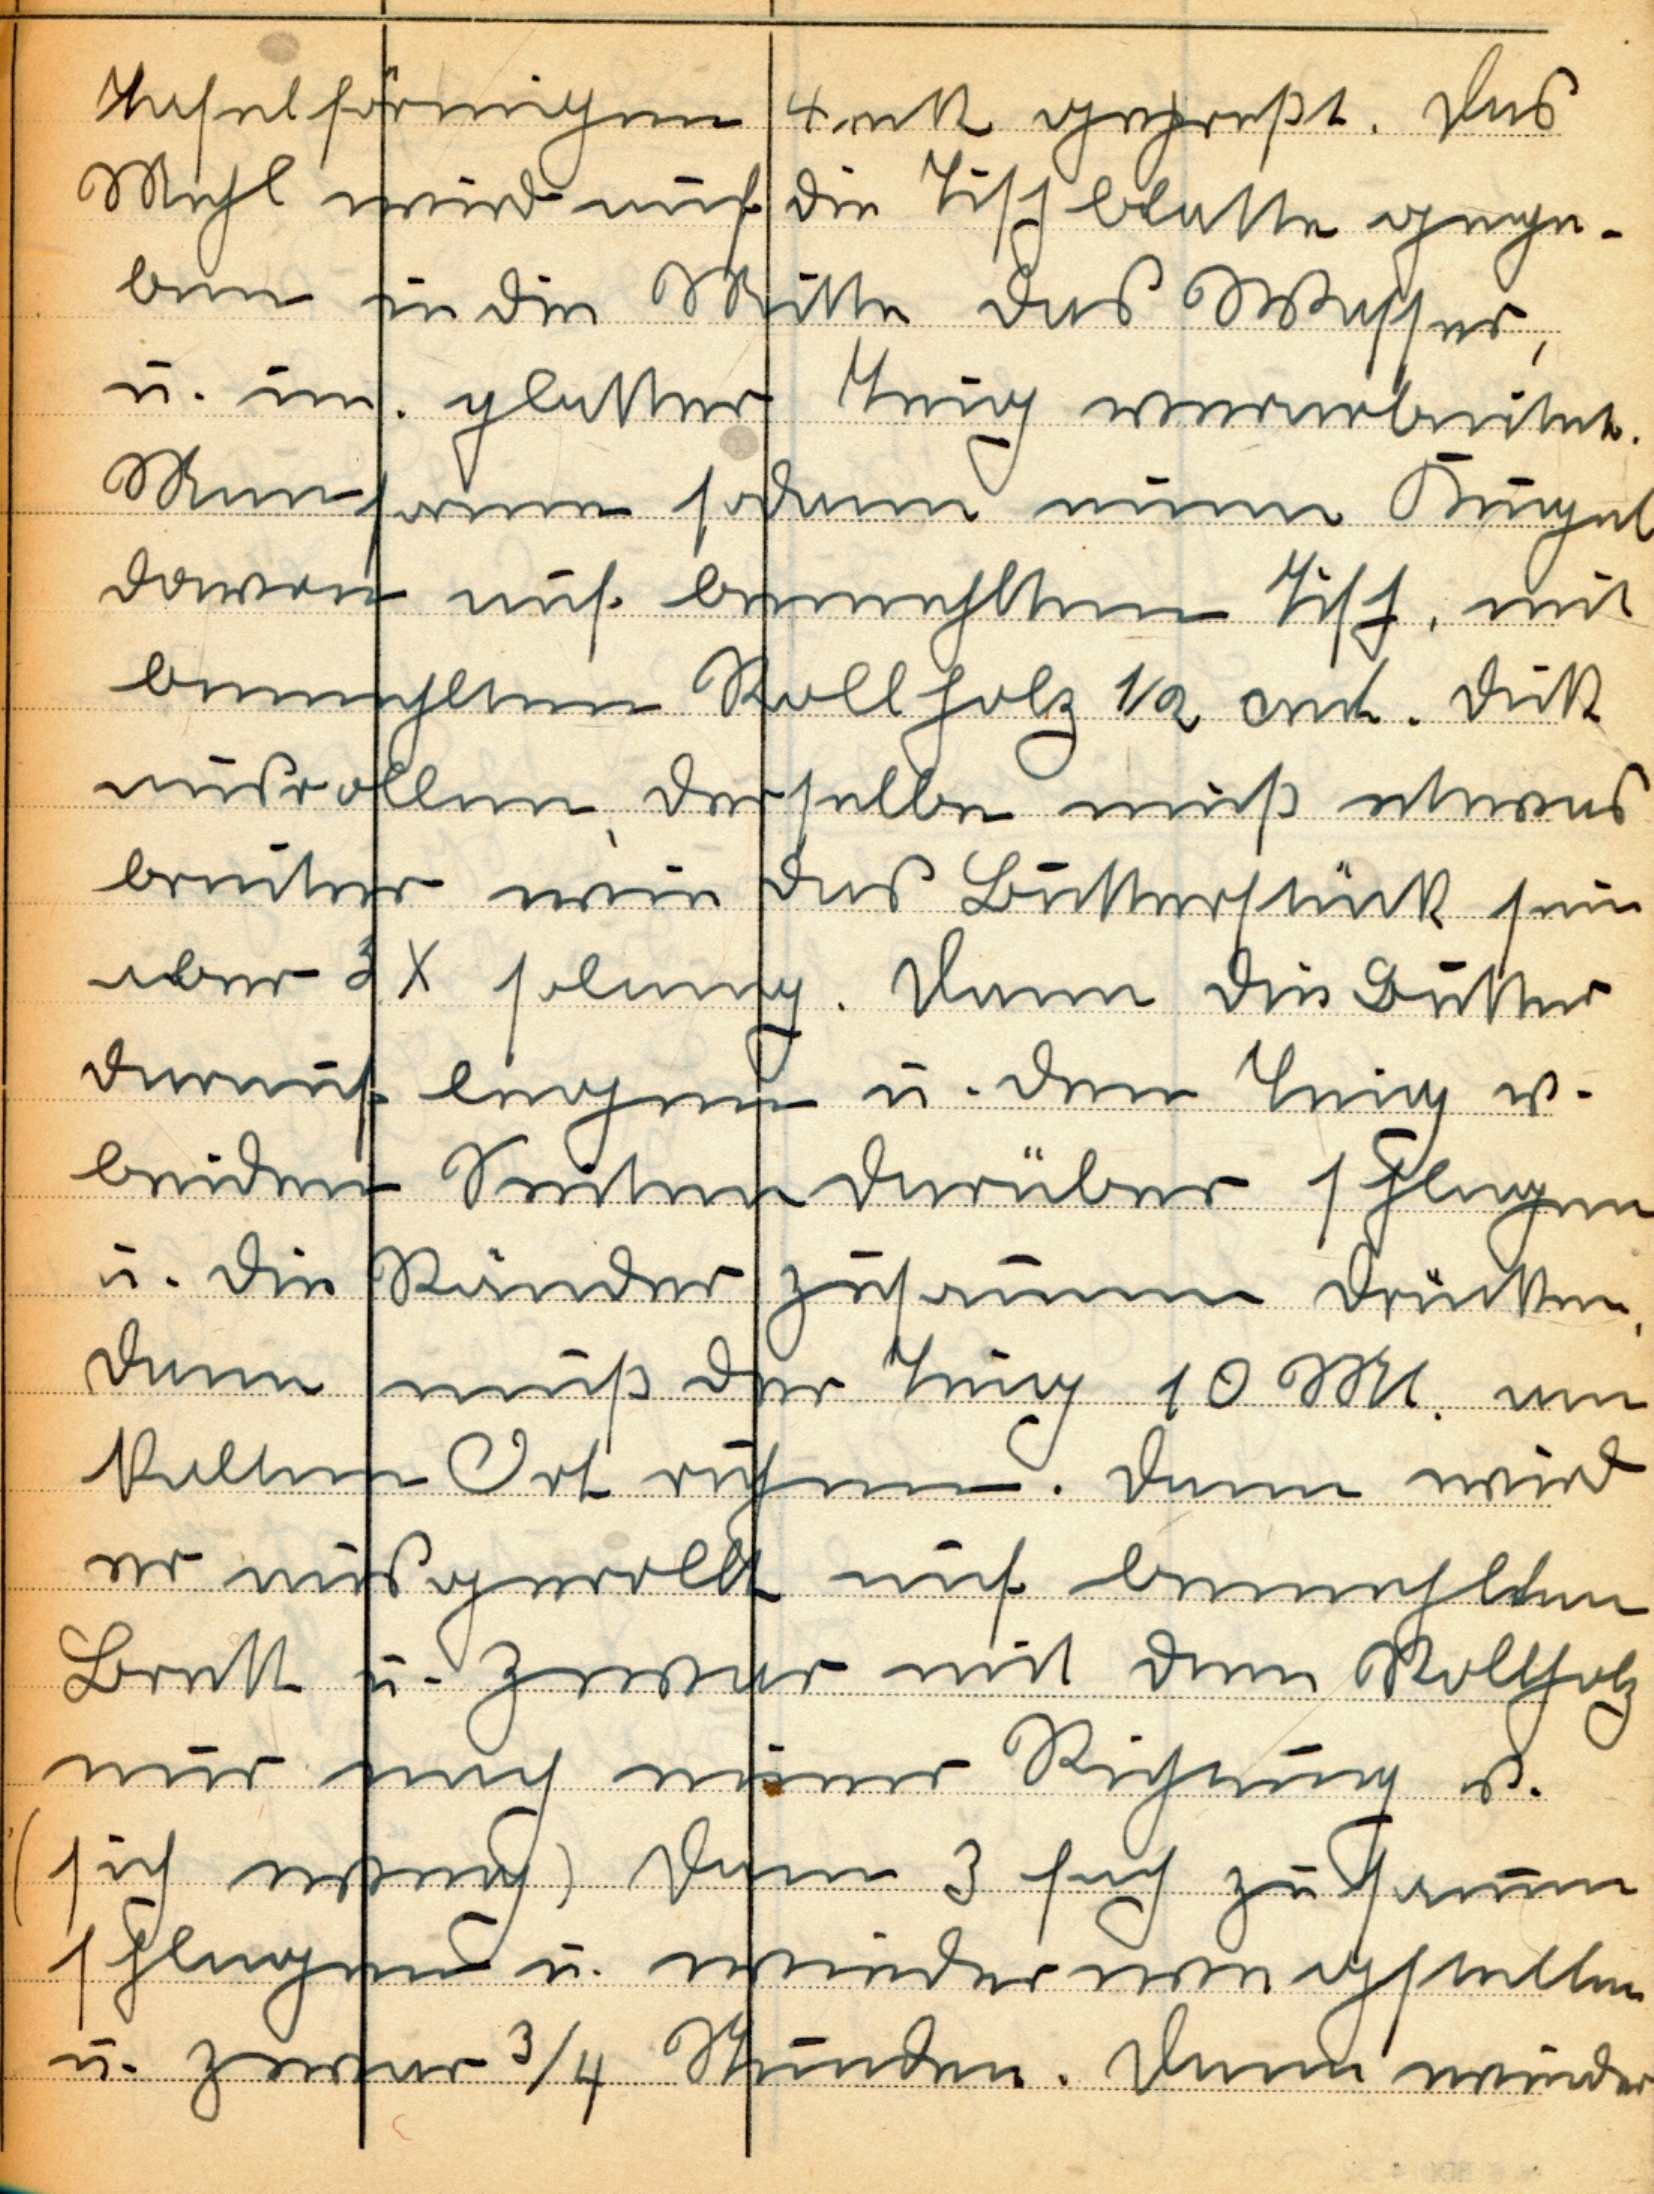 tafelförmigen 4 eck gepreßt. Das
Mehl wird auf die Tischblatte gege-
ben in die Mitte das Wasser,
u. im. glatter Teig verarbeitet.
Man forme sodann einen Kugel
davon auf bemehltem Tisch, mit
bemehltem Rollholz 1/2 cmt. dick
ausrollen, derselbe muß etwas
breiter wie das Butterstück sein
aber 3 X solang. Dann die Butter
darauf legen u. den Teig v.
beiden Seiten darüber schlagen
u. die Ränder zusammen drücken,
dann muß der Teig 10 Mt. am
kalten Ort ruhen. Dann wird
er ausgerollt auf bemehlten
Brett u. zwar mit dem Rollholz
nur nach einer Richtung v.
(sich weg) Dann 3 fach zusammen
schlagen u. wieder wegstellen
u. zwar 3/4 Stunden. Dann wieder